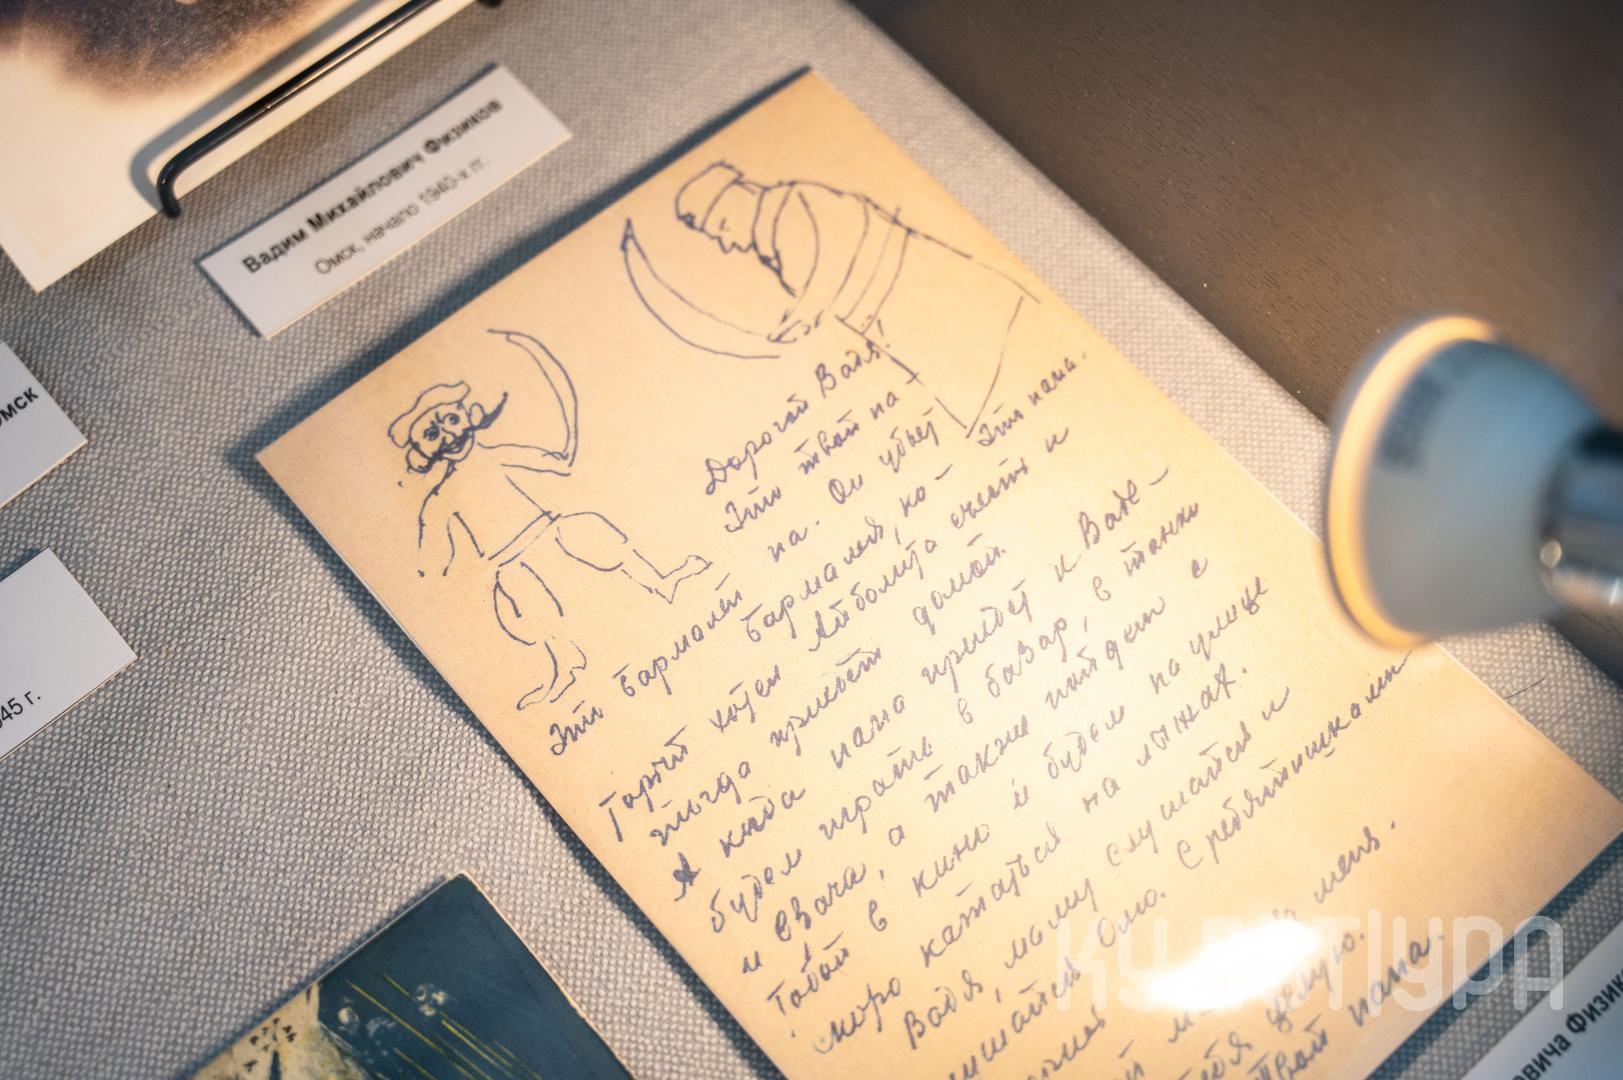 Вадим Михайлович Физиков
Омск, начало 1940-х гг.
омск
945 г.
Дорогой Вадя!
Это твой па-
па. Он убьет
Это папа.
Это бармалей
бармалея, ко-
торый хотел Айболита съесть и
тогда приедет домой.
А когда папа приедет к Ваде -
будем играть в базар, в танки
и врача, а также пойдем с
Тобой в кино и будем на улице
скоро кататься на лыжах.
Вадя, маму слушайся и
слушайся Олю. С ребятишками
меня.
целую.
Твой папа.
КУЛЬТУРА
овича Физик